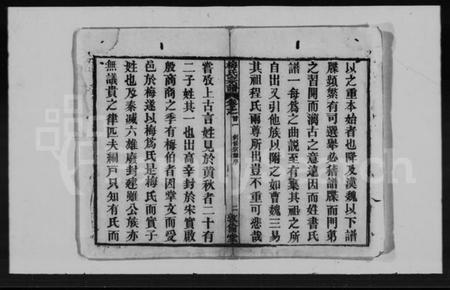 以之重本始者也降及漢魏以下譜
牒類繁有可選舉必稽譜牒而門第
之習開而漓古之意遠因而姓書氏
譜一每爲之曲說至有棄其祖之所
自出又引他族以附之如曹魏三易
其祖程氏兩尊所出豈不重可悲哉
梅氏宗譜
卷之首
二
敦倫堂
嘗攷上古言姓見於黃秋者二十有
二子姓其一也出高辛封於宋實啟
殷商商之季有梅伯者因掌文而受
邑於梅遂以梅爲氏是梅氏而實子
姓也及秦滅六雄廢封建雖公族亦
無議貴之律匹夫編戶只知有氏而